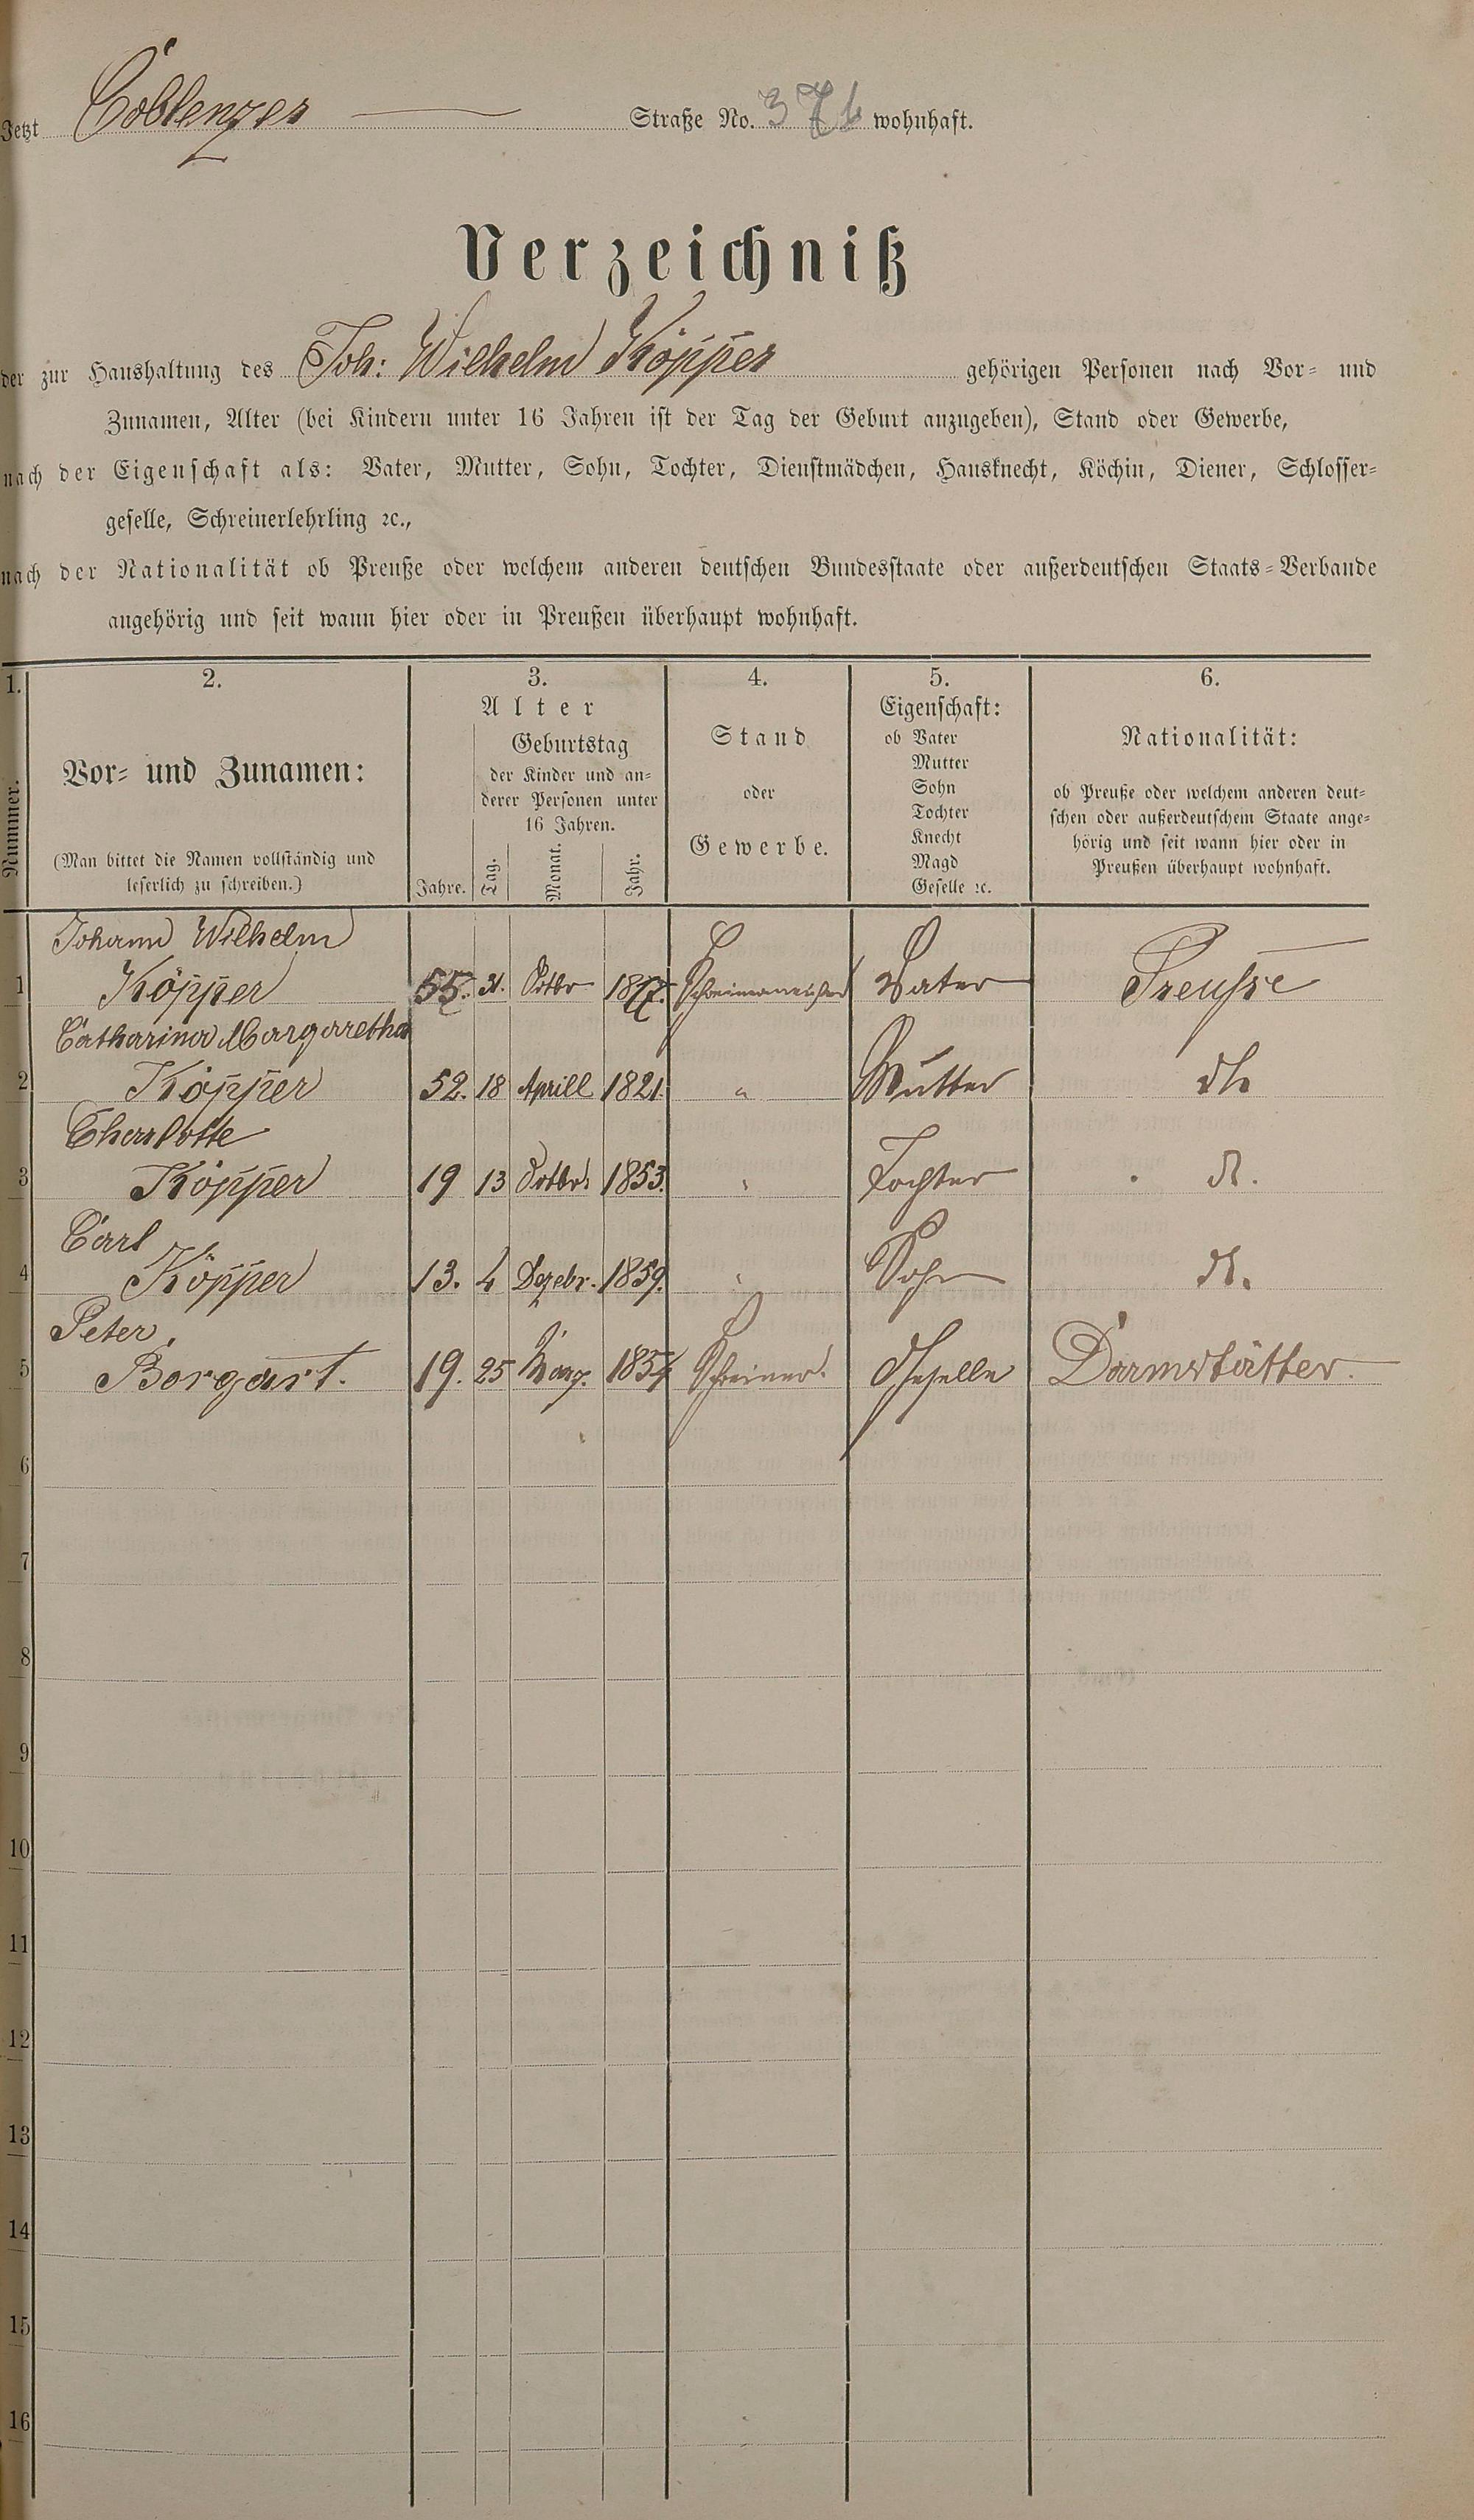 Jetzt Coblenzer Straße No. 37b wohnhaft.
Verzeichniß
der zur Haushaltung des Joh: Wilhelm Köpper gehörigen Personen nach Vor- und
Zunamen, Alter (bei Kindern unter 16 Jahren ist der Tag der Geburt anzugeben), Stand oder Gewerbe,
nach der Eigenschaft als: Vater, Mutter, Sohn, Tochter, Dienstmädchen, Hausknecht, Köchin, Diener, Schlosser-
geselle, Schreinerlehrling ꝛc.,
nach der Nationalität ob Preuße oder welchem anderen deutschen Bundesstaate oder außerdeutschen Staats-Verbande
angehörig und seit wann hier oder in Preußen überhaupt wohnhaft.
1.
Nummer.
2.
Vor- und Zunamen:
(Man bittet die Namen vollständig und
leserlich zu schreiben.)
3.
Alter
Jahre.
Geburtstag
der Kinder und an-
derer Personen unter
16 Jahren.
Tag.
Monat.
Jahr.
4.
Stand
oder
Gewerbe.
5.
Eigenschaft:
ob Vater
Mutter
Sohn
Tochter
Knecht
Magd
Geselle ꝛc.
6.
Nationalität:
ob Preuße oder welchem anderen deut-
schen oder außerdeutschem Staate ange-
hörig und seit wann hier oder in
Preußen überhaupt wohnhaft.
Johann Wilhelm
1 Köpper 55. 31. Octbr 1817. Vater Preusse
Catharina Margaretha
2 Köpper 52. 18 Aprill 1821. " Mutter dto
Charlotte
3 Köpper 19 13 Octbr. 1853. " Tochter do.
Carl
4 Köpper 13. 4 Dezebr. 1859. " Sohn do.
Peter
5 Borgart. 19. 25 März. 1854 Schreiner. Geselle Darmstätter.
6
7
8
9
10
11
12
13
14
15
16